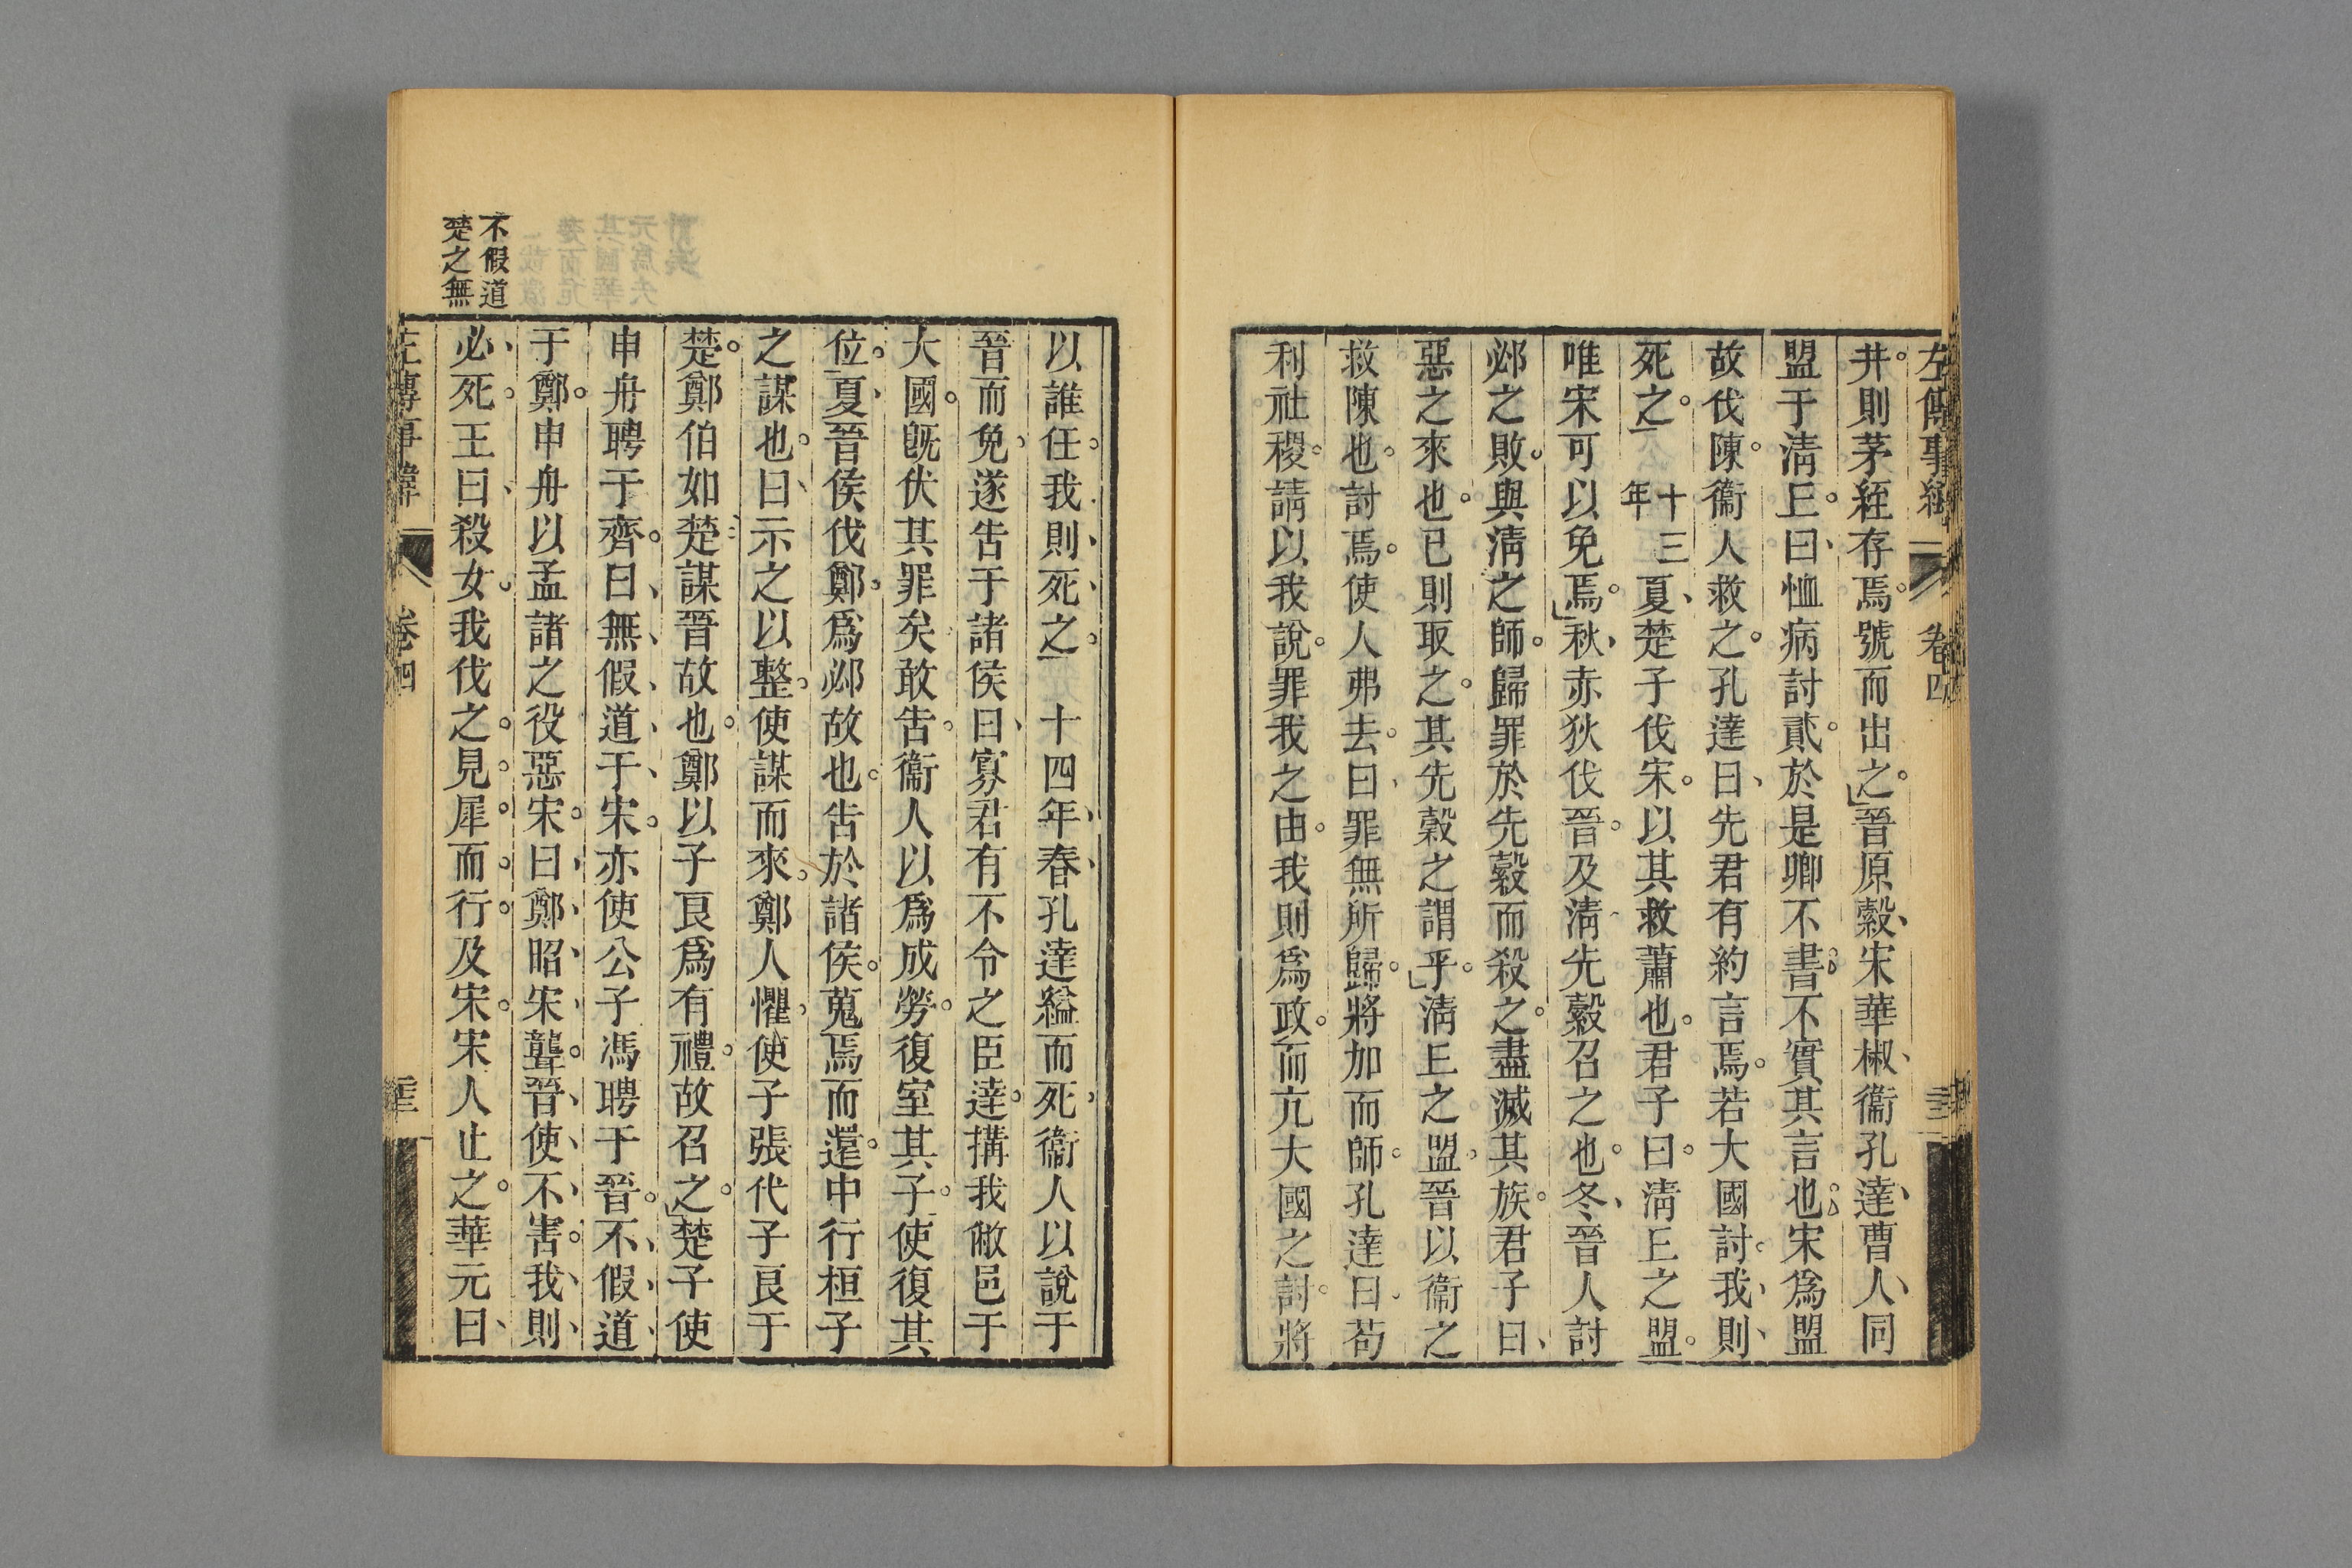 左傳事緯
卷四
井則茅絰存焉號而出之晉原縠宋華椒衞孔達曹人同
盟于淸丘曰恤病討貳於是卿不書不實其言也宋爲盟
故伐陳衞人救之孔達曰先君有約言焉若大國討我則
死之十三年夏楚子伐宋以其救蕭也君子曰淸丘之盟
唯宋可以免焉秋赤狄伐晉及淸先縠召之也冬晉人討
邲之敗與淸之師歸罪於先縠而殺之盡滅其族君子曰
惡之來也已則取之其先縠之謂乎淸丘之盟晉以衞之
救陳也討焉使人弗去曰罪無所歸將加而師孔達曰苟
利社稷請以我說罪我之由我則爲政而亢大國之討將
以誰任我則死之十四年春孔達縊而死衞人以說于
晉而免遂告于諸侯曰寡君有不令之臣達搆我敝邑于
大國旣伏其罪矣敢告衞人以爲成勞復室其子使復其
位夏晉侯伐鄭爲邲故也告於諸侯蒐焉而還中行桓子
之謀也曰示之以整使謀而來鄭人懼使子張代子良于
楚鄭伯如楚謀晉故也鄭以子良爲有禮故召之楚子使
申舟聘于齊曰無假道于宋亦使公子馮聘于晉不假道
于鄭申舟以孟諸之役惡宋曰鄭昭宋聾晉使不害我則
必死王曰殺女我伐之見犀而行及宋宋人止之華元曰
不假道
楚之無
左傳事緯
卷四